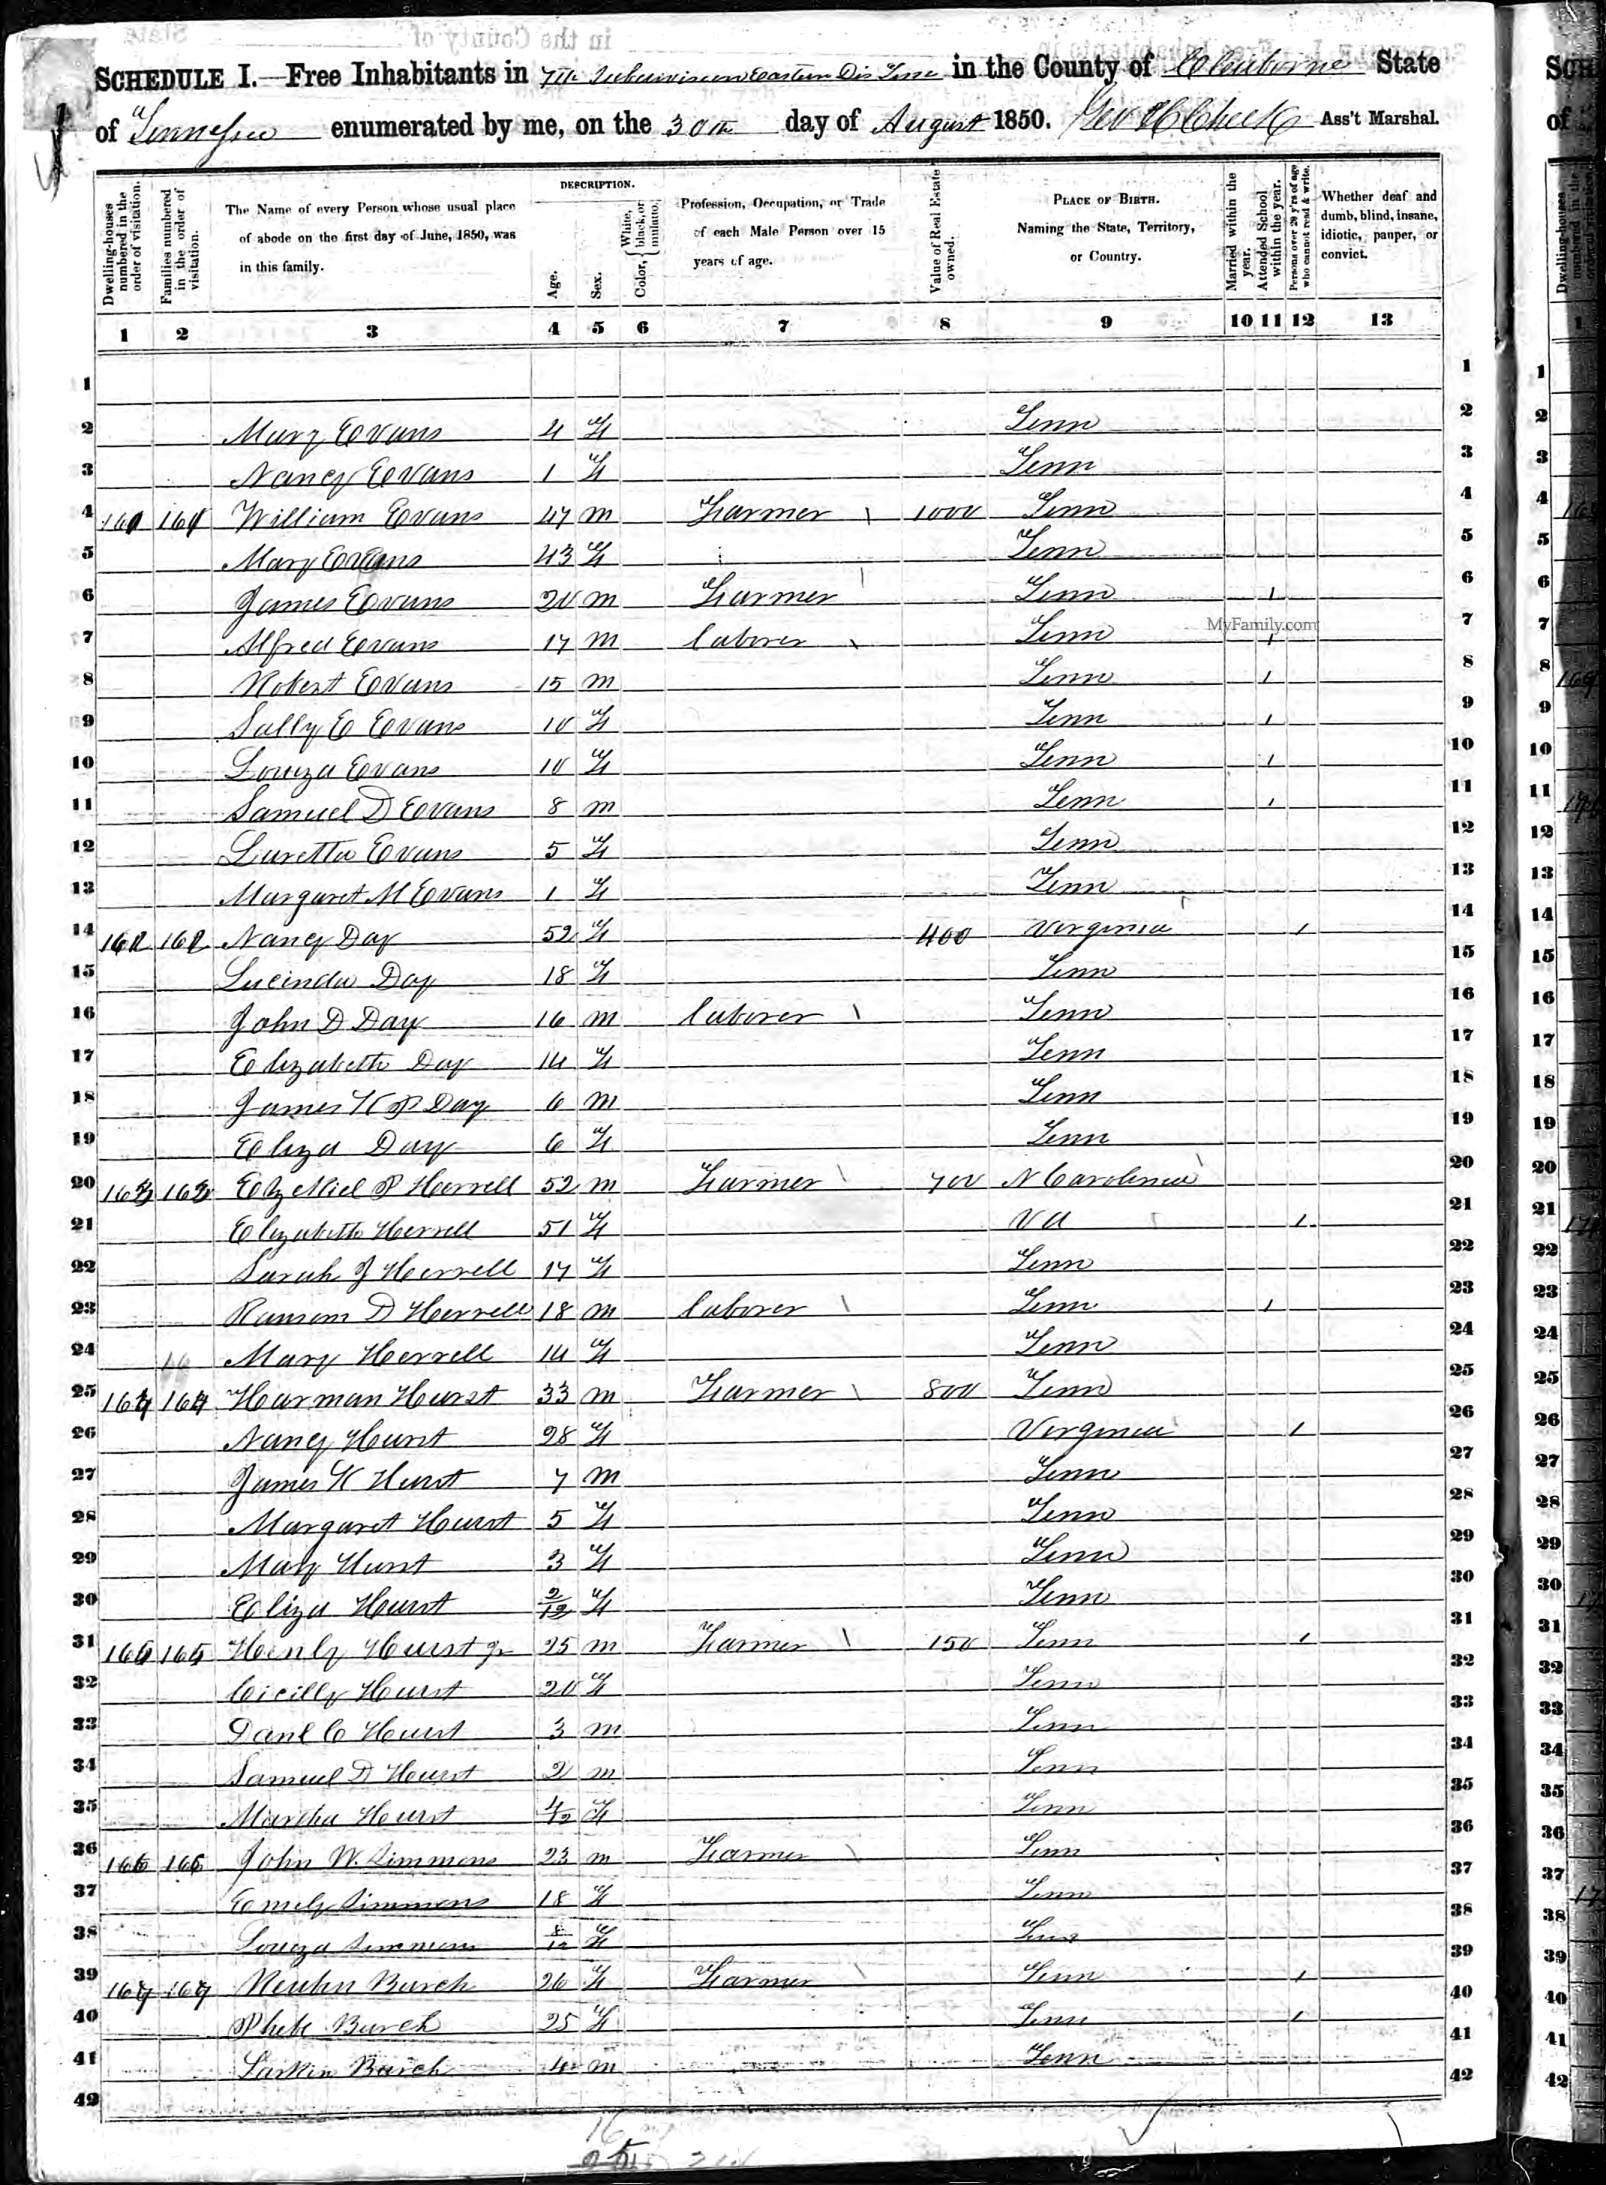 SCHEDULE I.—Free Inhabitants in 7th Subdivision Eastern Dis Tenn in the County of Claiborne State
of Tennessee enumerated by me, on the 30th day of August 1850. Geo H Cheek Ass't Marshal.
Dwelling-houses numbered in the order of visitation.
Families numbered in the order of visitation.
The Name of every Person whose usual place of abode on the first day of June, 1850, was in this family.
DESCRIPTION.
Age.
Sex.
Color, White, black, or mulatto.
Profession, Occupation, or Trade of each Male Person over 15 years of age.
Value of Real Estate owned.
PLACE OF BIRTH. Naming the State, Territory, or Country.
Married within the year.
Attended School within the year.
Persons over 20 y'rs of age who cannot read & write.
Whether deaf and dumb, blind, insane, idiotic, pauper, or convict.
1 2 3 4 5 6 7 8 9 10 11 12 13
1 1
2 Mary Evans 4 F Tenn 2
3 Nancy Evans 1 F Tenn 3
4 161 161 William Evans 47 m Farmer 1000 Tenn 4
5 Mary Evans 43 F Tenn 5
6 James Evans 20 m Farmer Tenn 1 6
MyFamily.com
7 Alfred Evans 17 m laborer Tenn 1 7
8 Robert Evans 15 m Tenn 1 8
9 Sally E Evans 10 F Tenn 1 9
10 Louiza Evans 10 F Tenn 1 10
11 Samuel D Evans 8 m Tenn 1 11
12 Luretta Evans 5 F Tenn 12
13 Margaret M Evans 1 F Tenn 13
14 162 162 Nancy Day 52 F 400 Virginia 1 14
15 Lucinda Day 18 F Tenn 15
16 John D Day 16 m laborer Tenn 16
17 Elizabeth Day 14 F Tenn 17
18 James K P Day 6 m Tenn 18
19 Eliza Day 6 F Tenn 19
20 163 163 P Harrell 52 m Farmer 700 N Carolina 20
21 Elizabeth Herrell 51 F Va 1 21
22 Sarah J Herrell 17 F Tenn 22
23 Ransom D Herrell 18 m laborer Tenn 1 23
24 Mary Herrell 14 F Tenn 24
25 164 164 Harman Hurst 33 m Farmer 800 Tenn 25
26 Nancy Hurst 28 F Virginia 1 26
27 James K Hurst 7 m Tenn 27
28 Margaret Hurst 5 F Tenn 28
29 Mary Hurst 3 F Tenn 29
30 Eliza Hurst 2/12 F Tenn 30
31 165 165 Henly Hurst jr 25 m Farmer 150 Tenn 1 31
32 Cicilly Hurst 20 F Tenn 32
33 Danl C Hurst 3 m Tenn 33
34 Samuel D Hurst 2 m Tenn 34
35 Martha Hurst 4/12 F Tenn 35
36 166 166 John W. Simmons 23 m Farmer Tenn 36
37 Emily Simmons 18 F Tenn 37
38 Louiza Simmons 8/12 F Tenn 38
39 167 167 Burch 26 F Farmer Tenn 1 39
40 Phebe Burch 25 F Tenn 1 40
41 Larkin Burch 4 m Tenn 41
42 42